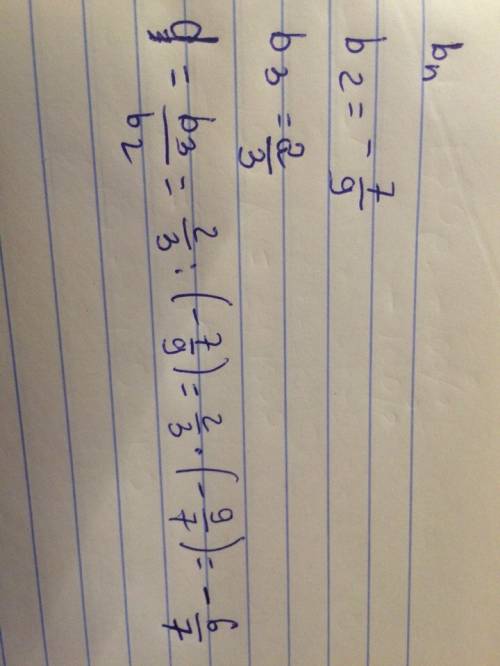 bₙ
b₂ = -7/9
b₃ = 2/3
q = b₃/b₂ = 2/3 : (-7/9) = 2/3 · (-9/7) = -6/7